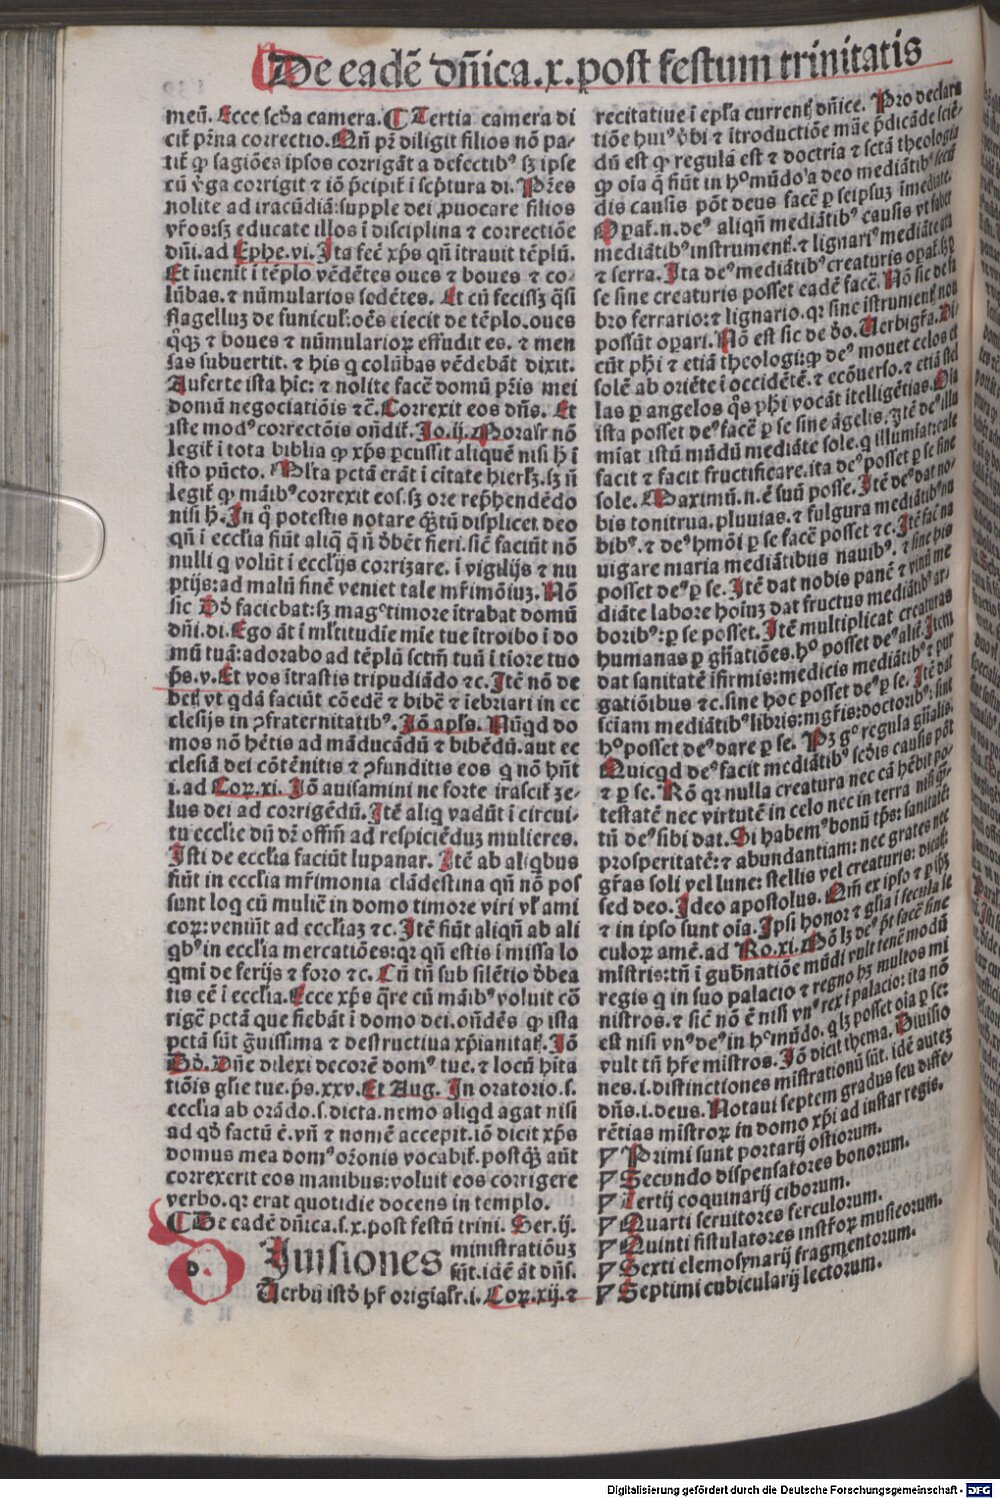 De eadē dn̄ica.x.post festum trinitatis
meū. Ecce scḋa camera. ¶ Tertia camera di
cit᷑ pr̄na correctio. Qn̄ pr̄ diligit filios nō pa-
tit᷑ ꝙ sagiōes ipsos corrigāt a defectibꝰ sꝫ ipse
cū v̄ga corrigit ⁊ iō p̄cipit᷑ i scp̄tura di. Pr̄es
nolite ad iracūdiā: supple dei ꝓuocare filios
vr̄os: sꝫ educate illos ī disciplina ⁊ correctiōe
dn̄i. ad Ephe.vi. Ita fec̄ xp̄s qn̄ ītrauit tēplū.
Et īuenit ī tēplo vēdētes oues ⁊ boues ⁊ co-
lūbas. ⁊ nūmularios sedētes. Et cū fecissꝫ q̄si
flagelluꝫ de funicul᷑: oēs eiecit de tēplo. oues
q̄qꝫ ⁊ boues ⁊ nūmularioꝝ effudit es. ⁊ men
sas subuertit. ⁊ his q̇ colūbas vēdebāt dixit.
Auferte ista hīc: ⁊ nolite facē domū pr̄is mei
domū negociatiōis ⁊c̄. Correxit eos dn̄s. Et
iste modꝰ correctōis on̄dit᷑. Io.ij. Moralr̄ nō
legit᷑ ī tota biblia ꝙ xp̄s ꝑcussit aliquē nisi h̄ ī
isto pūcto. Ml̄ta pctā erāt ī citate hierl̄ꝫ. sꝫ n̄
legit᷑ ꝙ māibꝰ correxit eos. sꝫ ore rep̄hendēdo
nisi h̄. In q̇ potestis notare q̄ꝫtū displicet deo
qn̄ i eccl̄ia fiūt aliq̄ q̄ n̄ ḋbēt fieri. sic̄ faciūt nō
nulli q̇ volūt i eccl̄ijs corrizare. i vigilijs ⁊ nu
ptijs: ad malū finē veniet tale mr̄imōiuꝫ. Nō
sic Dḋ faciebat: sꝫ mag᷑ timore ītrabat domū
dn̄i. di. Ego āt i ml̄titudie mīe tue ītroibo i do
mū tuā: adorabo ad tēplū sctm̄ tuū ī tiore tuo
ps̄.v. Et vos ītrastis tripudiādo ⁊c. Itē nō de
betꝭ vt q̇dā faciūt cōedē ⁊ bibē ⁊ īebriari in ec
clesijs in ꝯfraternitatibꝰ. Iō apl̄s. Nūq̇d do
mos nō hētis ad māducādū ⁊ bibēdū. aut ec
clesiā dei cōtēnitis ⁊ ꝯfunditis eos q̇ nō hn̄t
i. ad Coꝝ.xi. Iō auisamini ne forte irascit᷑ ze-
lus dei ad corrigēdū. Itē aliq̇ vadūt i circui-
tu eccl̄ie dū dr̄ offm̄ ad respiciēduꝫ mulieres.
Isti de eccl̄ia faciūt lupanar. Itē ab aliq̇bus
fiūt in eccl̄ia mr̄imonia clādestina qn̄ nō pos
sunt loq̇ cū muliē in domo timore viri vl᷑ ami
coꝝ: veniūt ad eccl̄iaꝫ ⁊c. Itē fiūt aliqn̄ ab ali
q̇bꝰ in eccl̄ia mercatiōes: qꝛ qn̄ estis i missa lo
q̇mī de ferijs ⁊ foro ⁊c. Cū tn̄ sub silētio ḋbea
tis eē i eccl̄ia. Ecce xp̄s q̄re cū māibꝰ voluit cō
rigē pctā que fiebāt i domo dei. on̄dēs ꝙ ista
pctā sūt g̃uissima ⁊ destructiua xp̄ianitatꝭ. Iō
Dḋ. Dn̄e dilexi decorē domꝰ tue. ⁊ locū hīta
tiōis gl̄ie tue. ps̄.xxv. Et Aug. In oratorio.s.
eccl̄ia ab orādo.s. dicta. nemo aliq̇d agat nisi
ad qḋ factū ē. vn̄ ⁊ nomē accepit. iō dicit xp̄s
domus mea domꝰ or̄onis vocabit᷑. postq̄ꝫ aūt
correxerit eos manibus: voluit eos corrigere
verbo. qꝛ erat quotidie docens in templo.
¶ De eadē dn̄ica.s.x. post festū trini. Ser.ij.
Diuisiones ministratiōuꝫ
sūt. idē āt dn̄s.
Uerbū istḋ hr̄ origialr̄.i. Coꝝ.xij. ⁊
recitatiue i epl̄a currentꝭ dn̄ice. Pro declara
tiōe huiꝰ ṽbi ⁊ ītroductiōe māe p̄dicāde sciē-
dū est ꝙ regula est ⁊ doctria ⁊ sctā theologia
ꝙ oīa q̄ fiūt in hᵒ mūdo a deo mediātibꝰ secū
dis causis pōt deus facē ꝑ seipsuꝫ īmediate.
Opat᷑.n. deꝰ aliqn̄ mediātibꝰ causis vt faber
mediātibꝰ instrumentꝭ. ⁊ lignariꝰ mediāte
⁊ serra. Ita deꝰ mediātibꝰ creaturis opat᷑. sꝫ ꝑ
se sine creaturis posset eadē facē. Nō sic de fa
bro ferrario: ⁊ lignario. qꝛ sine īstrumentꝭ non
possūt opari. Nō est sic de ḋo. Uerbigr̄a. Di-
cūt ph̄i ⁊ etiā theologi: ꝙ deꝰ mouet celos et
solē ab oriēte ī occidētē. ⁊ ecōuerso. ⁊ etiā stel
las ꝑ angelos q̄s ph̄i vocāt ītelligētias. Oīa
ista posset deꝰ facē ꝑ se sine āgelis. Itē deꝰ illu
miat istū mūdū mediāte sole. q̇ illumiat: cale
facit ⁊ facit fructificare. ita deꝰ posset ꝑ se sine
sole. Maximū.n. ē suū posse. Itē deꝰ dat no-
bis tonitrua. pluuias. ⁊ fulgura mediātibꝰ nu
bibꝰ. ⁊ deꝰ hmōi ꝑ se facē posset ⁊c. Itē fac̄ na
uigare maria mediātibus nauibꝰ. ⁊ sine his
posset deꝰ ꝑ se. Itē dat nobis panē ⁊ vinū me
diāte labore hoīuꝫ dat fructus mediātibꝰ ar-
boribꝰ: ꝑ se posset. Itē multiplicat creaturas
humanas ꝑ gn̄atiōes. hᵒ posset deꝰ alit᷑. Item
dat sanitatē īfirmis: medicis mediātibꝰ ⁊ pur
gatiōibus ⁊c. sine hoc posset deꝰ ꝑ se. Itē dat
sciam mediātibꝰ libris: mgr̄is: doctoribꝰ: sine
hᵒ posset deꝰ dare ꝑ se. Pꝫ gᵒ regula gn̄alis.
Quicq̇d deꝰ facit mediātibꝰ scḋis causis pōt
⁊ ꝑ se. Rō qꝛ nulla creatura nec cā hēbit po-
testatē nec virtutē in celo nec in terra nisi q̄n-
tū deꝰ sibi dat. Si habemꝰ bonū tp̄s: sanitatē:
prosperitatē: ⁊ abundantiam: nec grates nec
gr̄as soli vel lune: stellis vel creaturis: dicatꝭ
sed deo. Ideo apostolus. Qm̄ ex ipso ⁊ ꝑ ip̄ꝫ
⁊ in ipso sunt oīa. Ipsi honor ⁊ gl̄ia ī secula se
culoꝝ amē. ad Ro.xi. Nō lꝫ deꝰ pt̄ facē sine
mīstris: tn̄ ī gub̄natiōe mūdi vult tenē modū
regis q̇ in suo palacio ⁊ regno hꝫ multos mi
nistros. ⁊ sic̄ nō ē nisi vnꝰ rex ī palacio: ita nō
est nisi vnꝰ deꝰ in hᵒ mūdo. q̇ lꝫ posset oīa ꝑ se:
vult tn̄ hr̄e mīstros. Iō dicit thema. Diuisio
nes.i. distinctiones mīstrationū sūt. idē auteꝫ
dn̄s.i. deus. Notaui septem gradus seu diffe-
rētias mīstroꝝ in domo xp̄i ad instar regis.
Primi sunt portarij ostiorum.
Secundo dispensatores bonorum.
Tertij coquinarij ciborum.
Quarti seruitores ferculorum.
Quinti fistulatores instr̄oꝝ musicorum.
Sexti elemosynarij fragmentorum.
Septimi cubicularij lectorum.
Digitalisierung gefördert durch die Deutsche Forschungsgemeinschaft - DFG